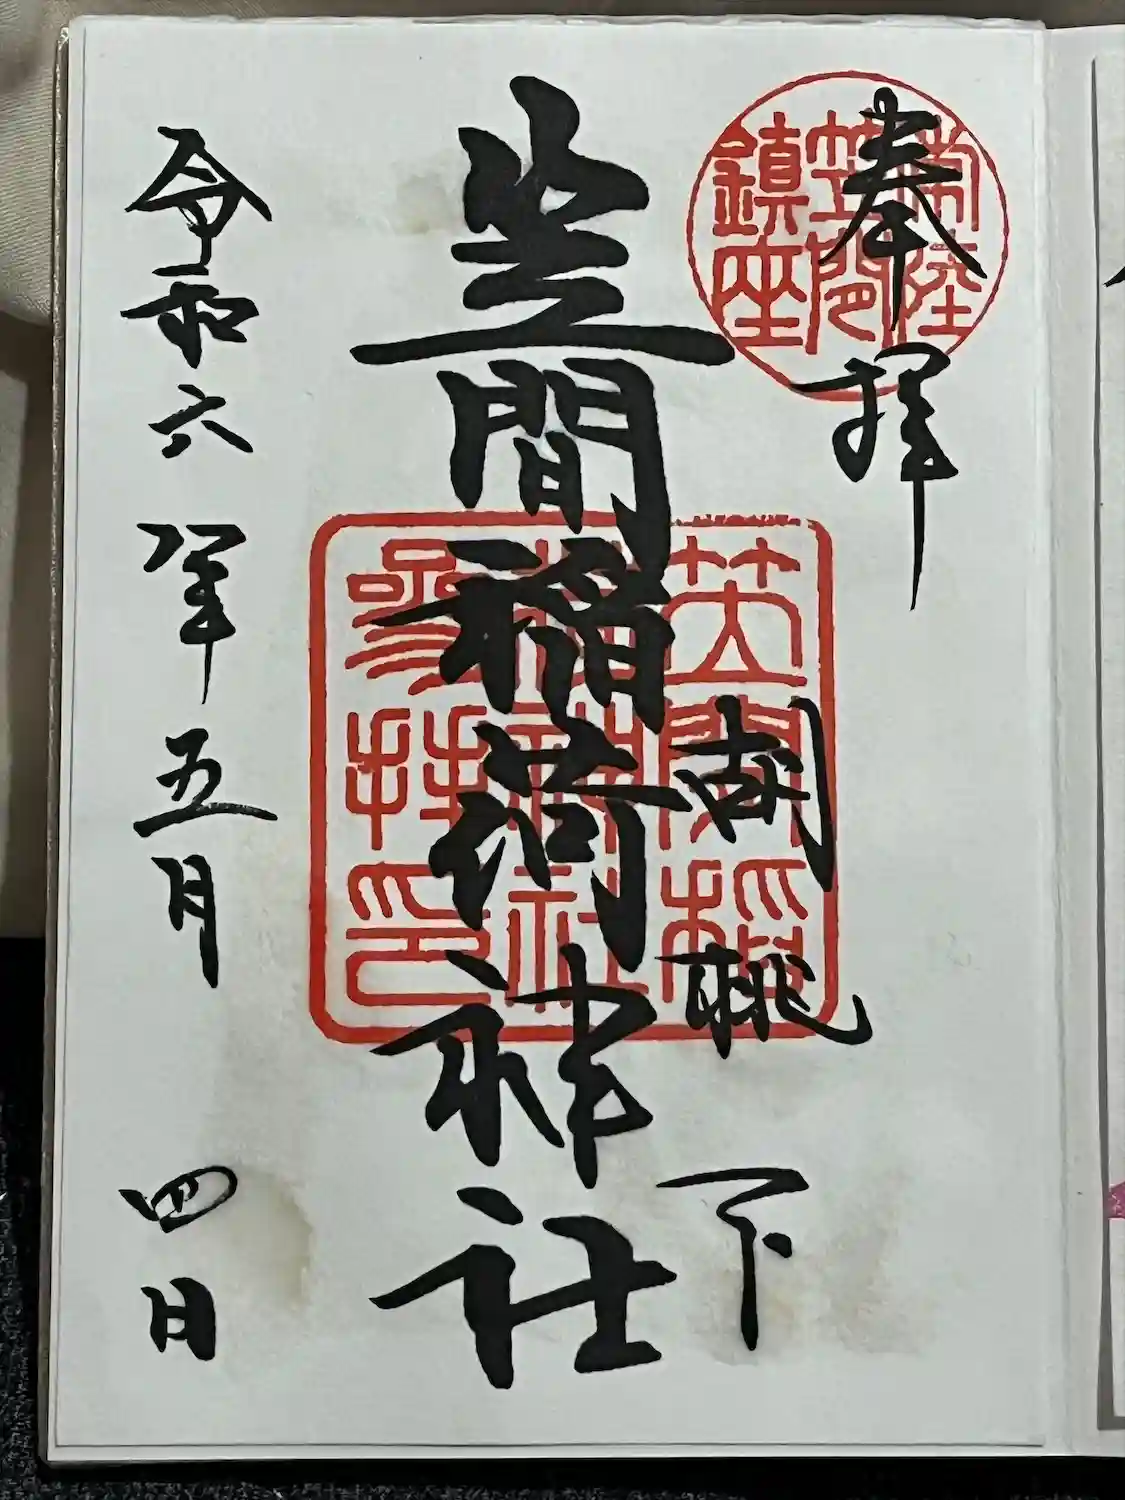 奉拝
胡桃下
笠間稲荷神社
令和六年五月四日
常陸
笠間
鎮座
笠間稲
荷神社
参拝印